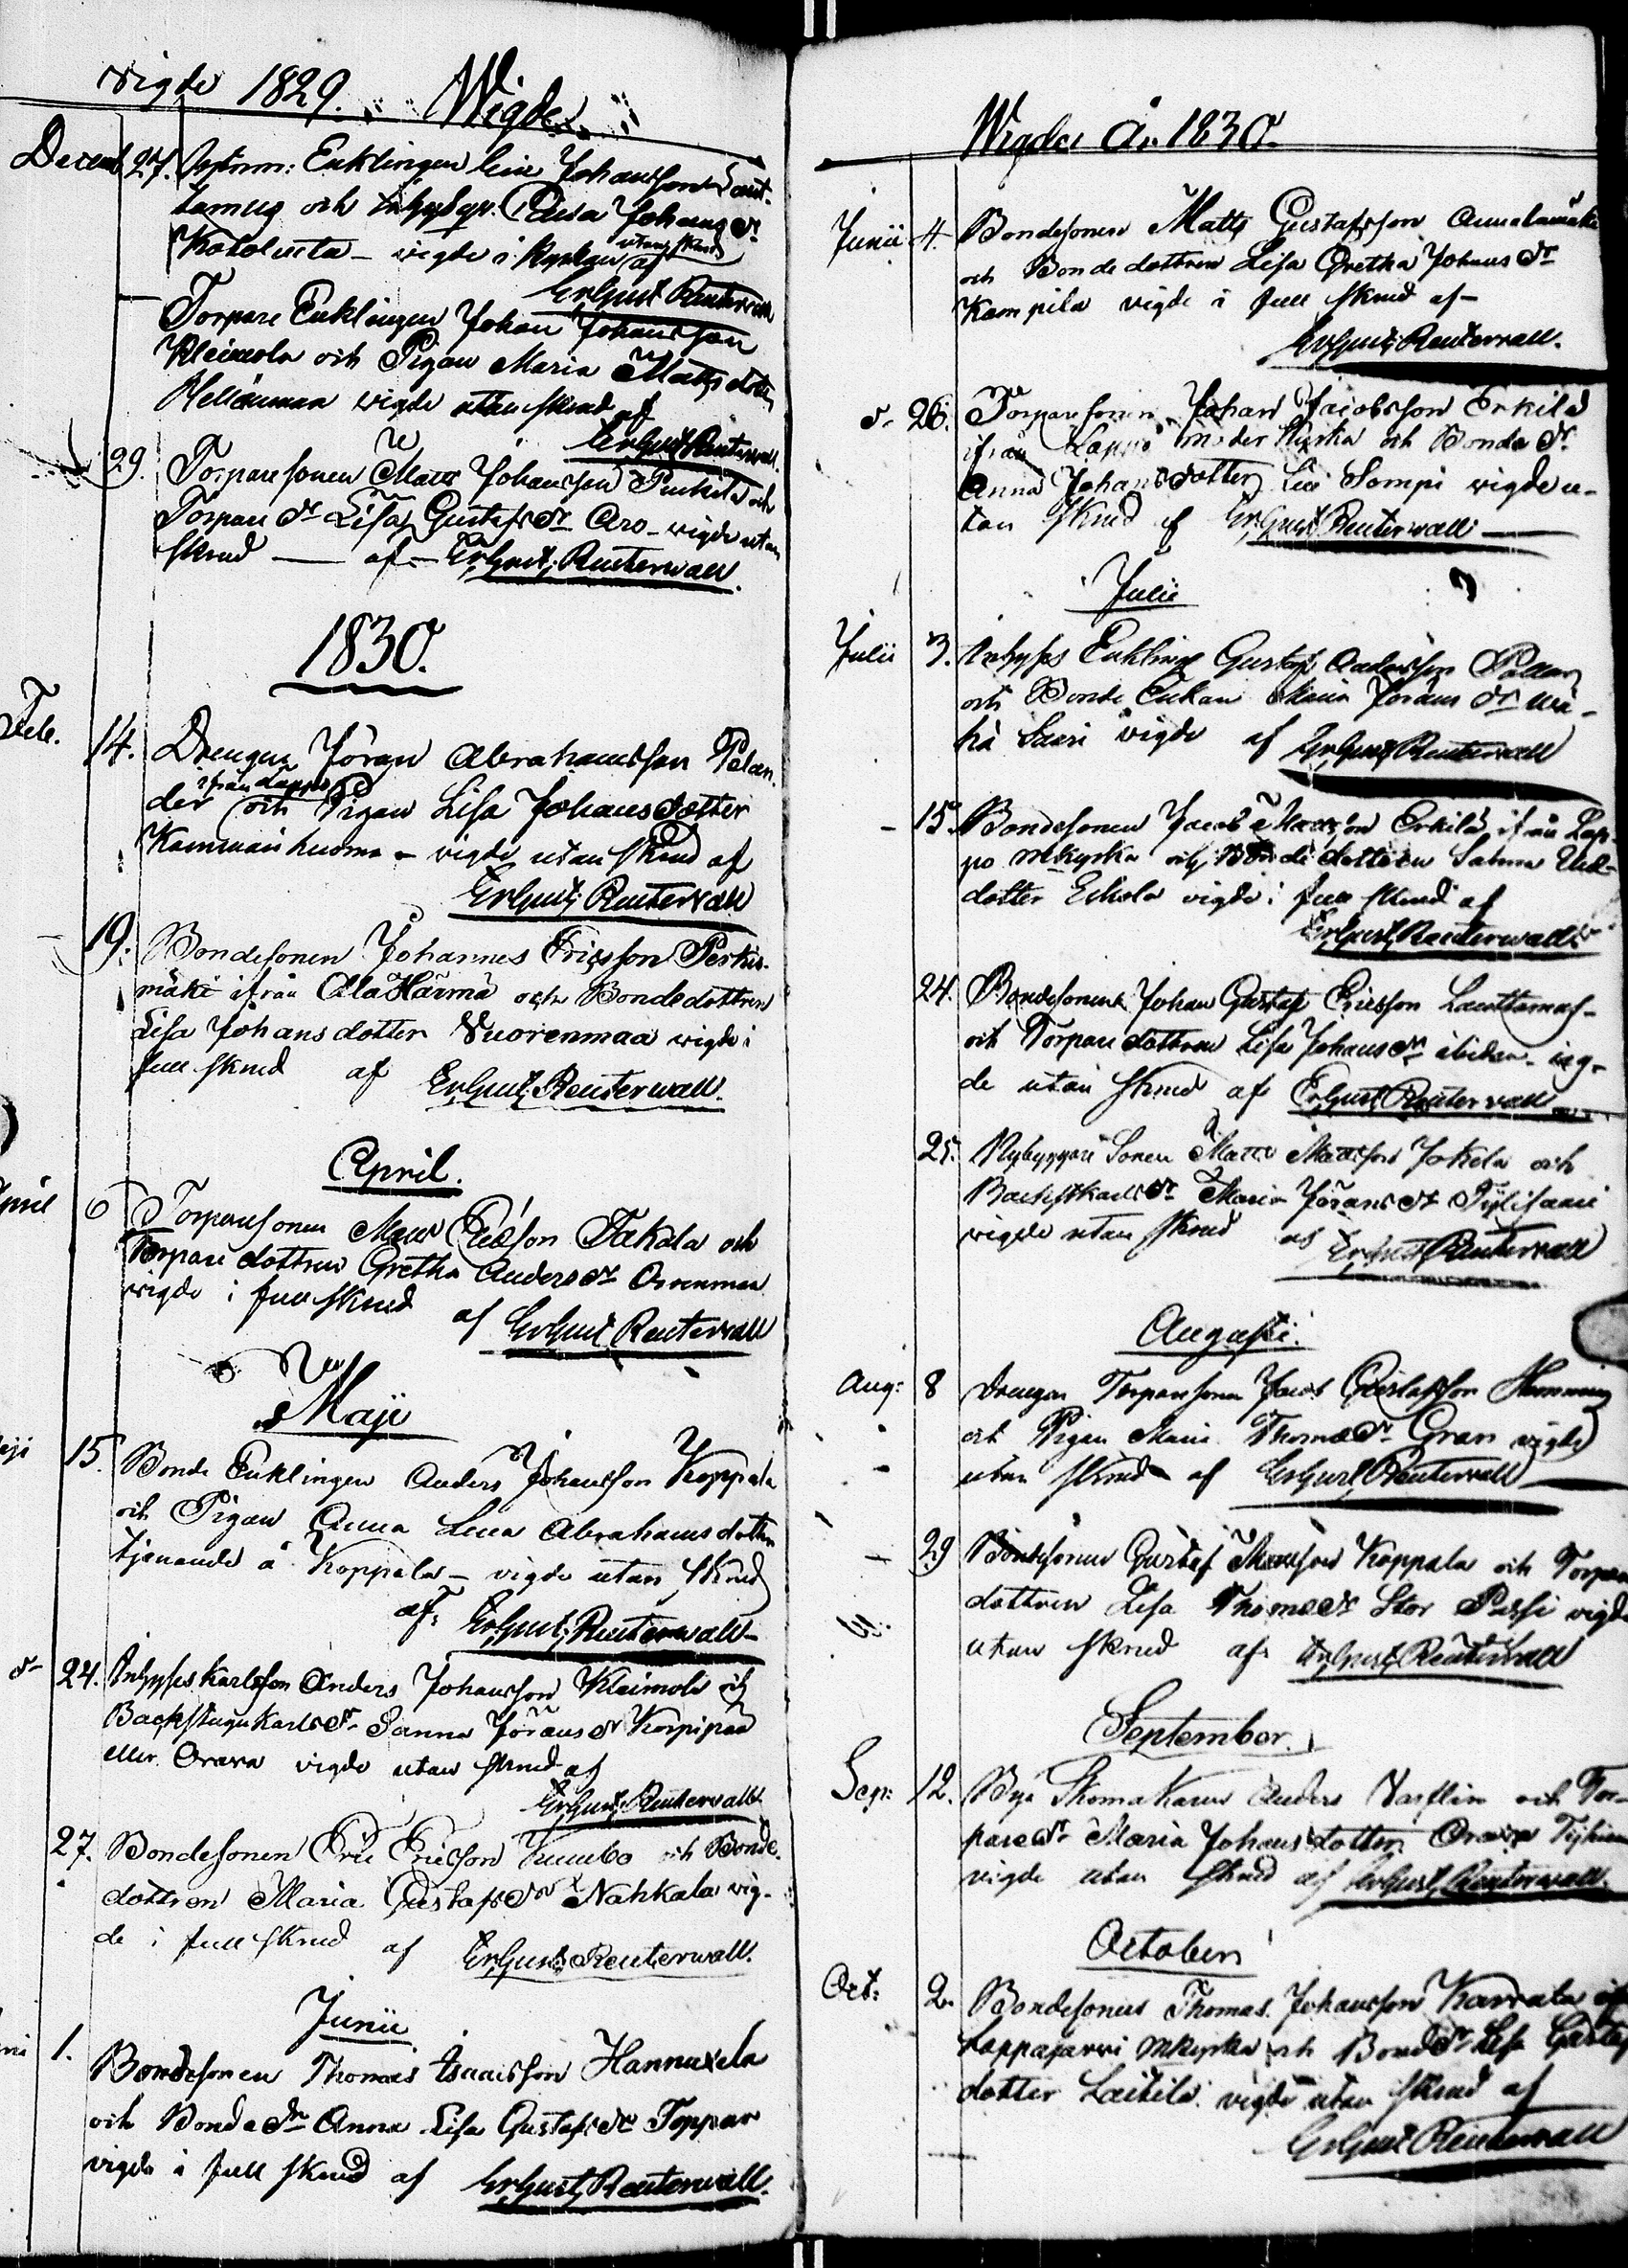 Wigde 1829. Wigde.
Decemb 27. Enklingen Johansson
och Johans dr
vigde i Kyrkan utan skrud af
ErGust; Reuterwall
Torpare Enklingen Johan Johansson
Kleimola och Pigan Maria Matts dotter
vigde utan skrud af
ErGust; Reuterwall.
29. Torparesonen Matts Johansson Penkila och
Torpare dr Lisa Gustafs dr Aro – vigde utan
skrud — af – ErGust; Reuterwall.
1830.
Feb. 14. Drengen Jöran Abrahamsson Pelan-
ifrån Lappo
der och Pigan Lisa Johansdotter
– vigde utan skrud af
ErGust; Reuterwall
19. Bondesonen Johannes Ericsson Perkiö-
mäki ifrån Ala Härmä och Bondedottren
Lisa Johansdotter Vuorenmaa vigde i
full skrud af ErGust; Reuterwall.
April.
April 6 Torparesonen Matts Ericsson Takala och
Torpare dottren Gretha Anders dr Orrenmaa
vigde i full skrud af ErGust; Reuterwall
Maji
Maji 15. Bonde Enklingen Anders Johansson Koppala
och Pigan Anna Lena Abrahamsdotter
tjenande å Koppala – vigde utan skrud
af: ErGust; Reuterwall –
d– 24. Inhysses karlsson Anders Johansson Kleimola och
Backstugu Karls dr Sanna Jörans dr Korpipää
eller Orava vigde utan skrud af
ErGust; Reuterwall
27. Bondesonen Eric Ericsson Kumbo och Bonde-
dottren Maria Gustafs dr Nahkala vig-
de i full skrud af ErGust; Reuterwall.
Junii
1. Bondesonen Thomas Isaacsson Hannuxela
och Bonde dr Anna Lisa Gustafs dr Toppar
vigde i full skrud af ErGust; Reuterwall.
Wigde År 1830.
Junii 4. Bondesonen Matts Gustafsson Annalamäki
och Bonde dottren Lisa Gretha Johans dr
Kampila vigde i full skrud af –
ErGust; Reuterwall.
d– 26. Torparesonen Johan Jacobsson Erkilä
ifrån Lappo moder Kyrka och Bonde dr
Anna Johansdotter Sompi vigde u-
tan skrud af ErGust; Reuterwall —
Julii
Julii 3. Inhyses Enkling Gustaf Andersson
och Bonde Enkan Maria Jörans dr Wä-
hä Saari vigde af ErGust; Reuterwall
– 15. Bondesonen Jacob Mattsson Erkilä ifrån Lap-
po mkyrka och Bonde dottren Sanna
dotter Eskola vigde i full skrud af
ErGust; Reuterwall.
24. Bondesonen Johan Gustaf Ericsson Lauttamus –
och Torpare dottren Lisa Johans dr ibidem – vig-
de utan skrud af ErGust; Reuterwall
25. Nybyggare Sonen Matts Mattsson Jokela och
Backstkarls dr Maria Jörans dr
vigde utan skrud af ErGust; Reuterwall
Augusti.
Aug: 8 Drengen Torparesonen Jacob Gustafsson Hemming
och Pigan Maria Thomæ dr Gran vigde
utan skrud – af ErGust; Reuterwall
– 29 Bondesonen Gustaf Mattsson Koppala och Torpare
dottren Lisa Thomæ dr Stor Passi vigde
utan skrud af: ErGust; Reuterwall
September.
Sep: 12. Byä Skomakaren Anders Varflin och Tor-
pare dr Maria Johansdotter Orava
vigde utan skrud af ErGust; Reuterwall.
October
Oct: 2. Bondesonen Thomas Johansson Karvala ifr
Lappajarvi mkyrka och Bonde dr Lisa Gustafs
dotter Laitila vigde utan skrud af
ErGust; Reuterwall